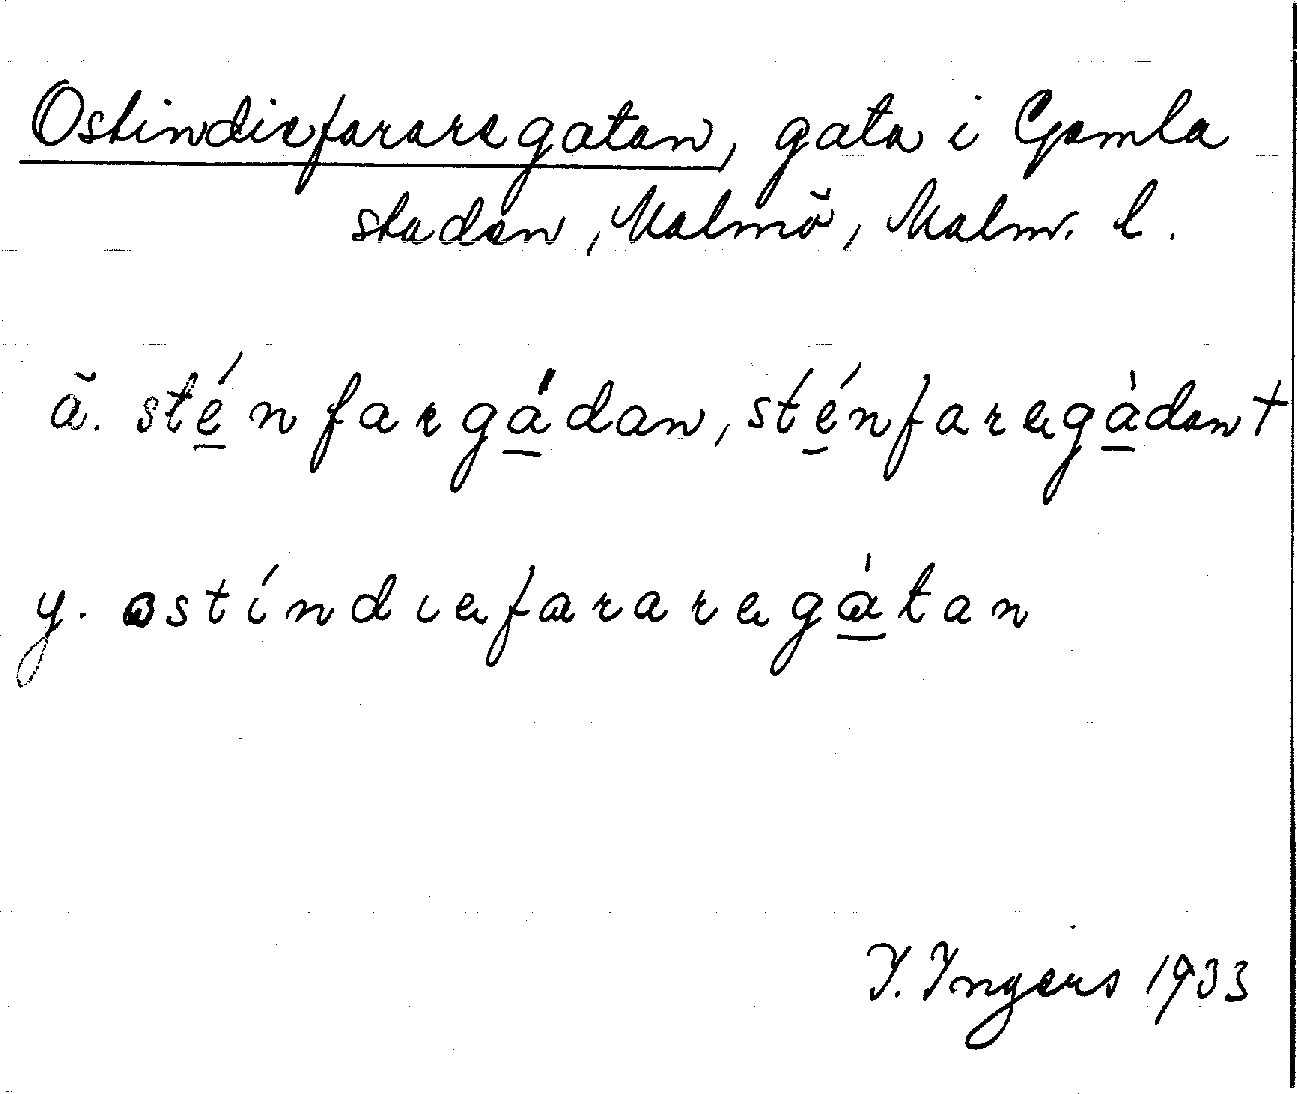 Ostindiefararegatan, gata i Gamla
staden, Malmö, Malm. l.
ä. sténfargádan, sténfaregàdan †
y. ostíndiefararegàtan
I. Ingers 1933